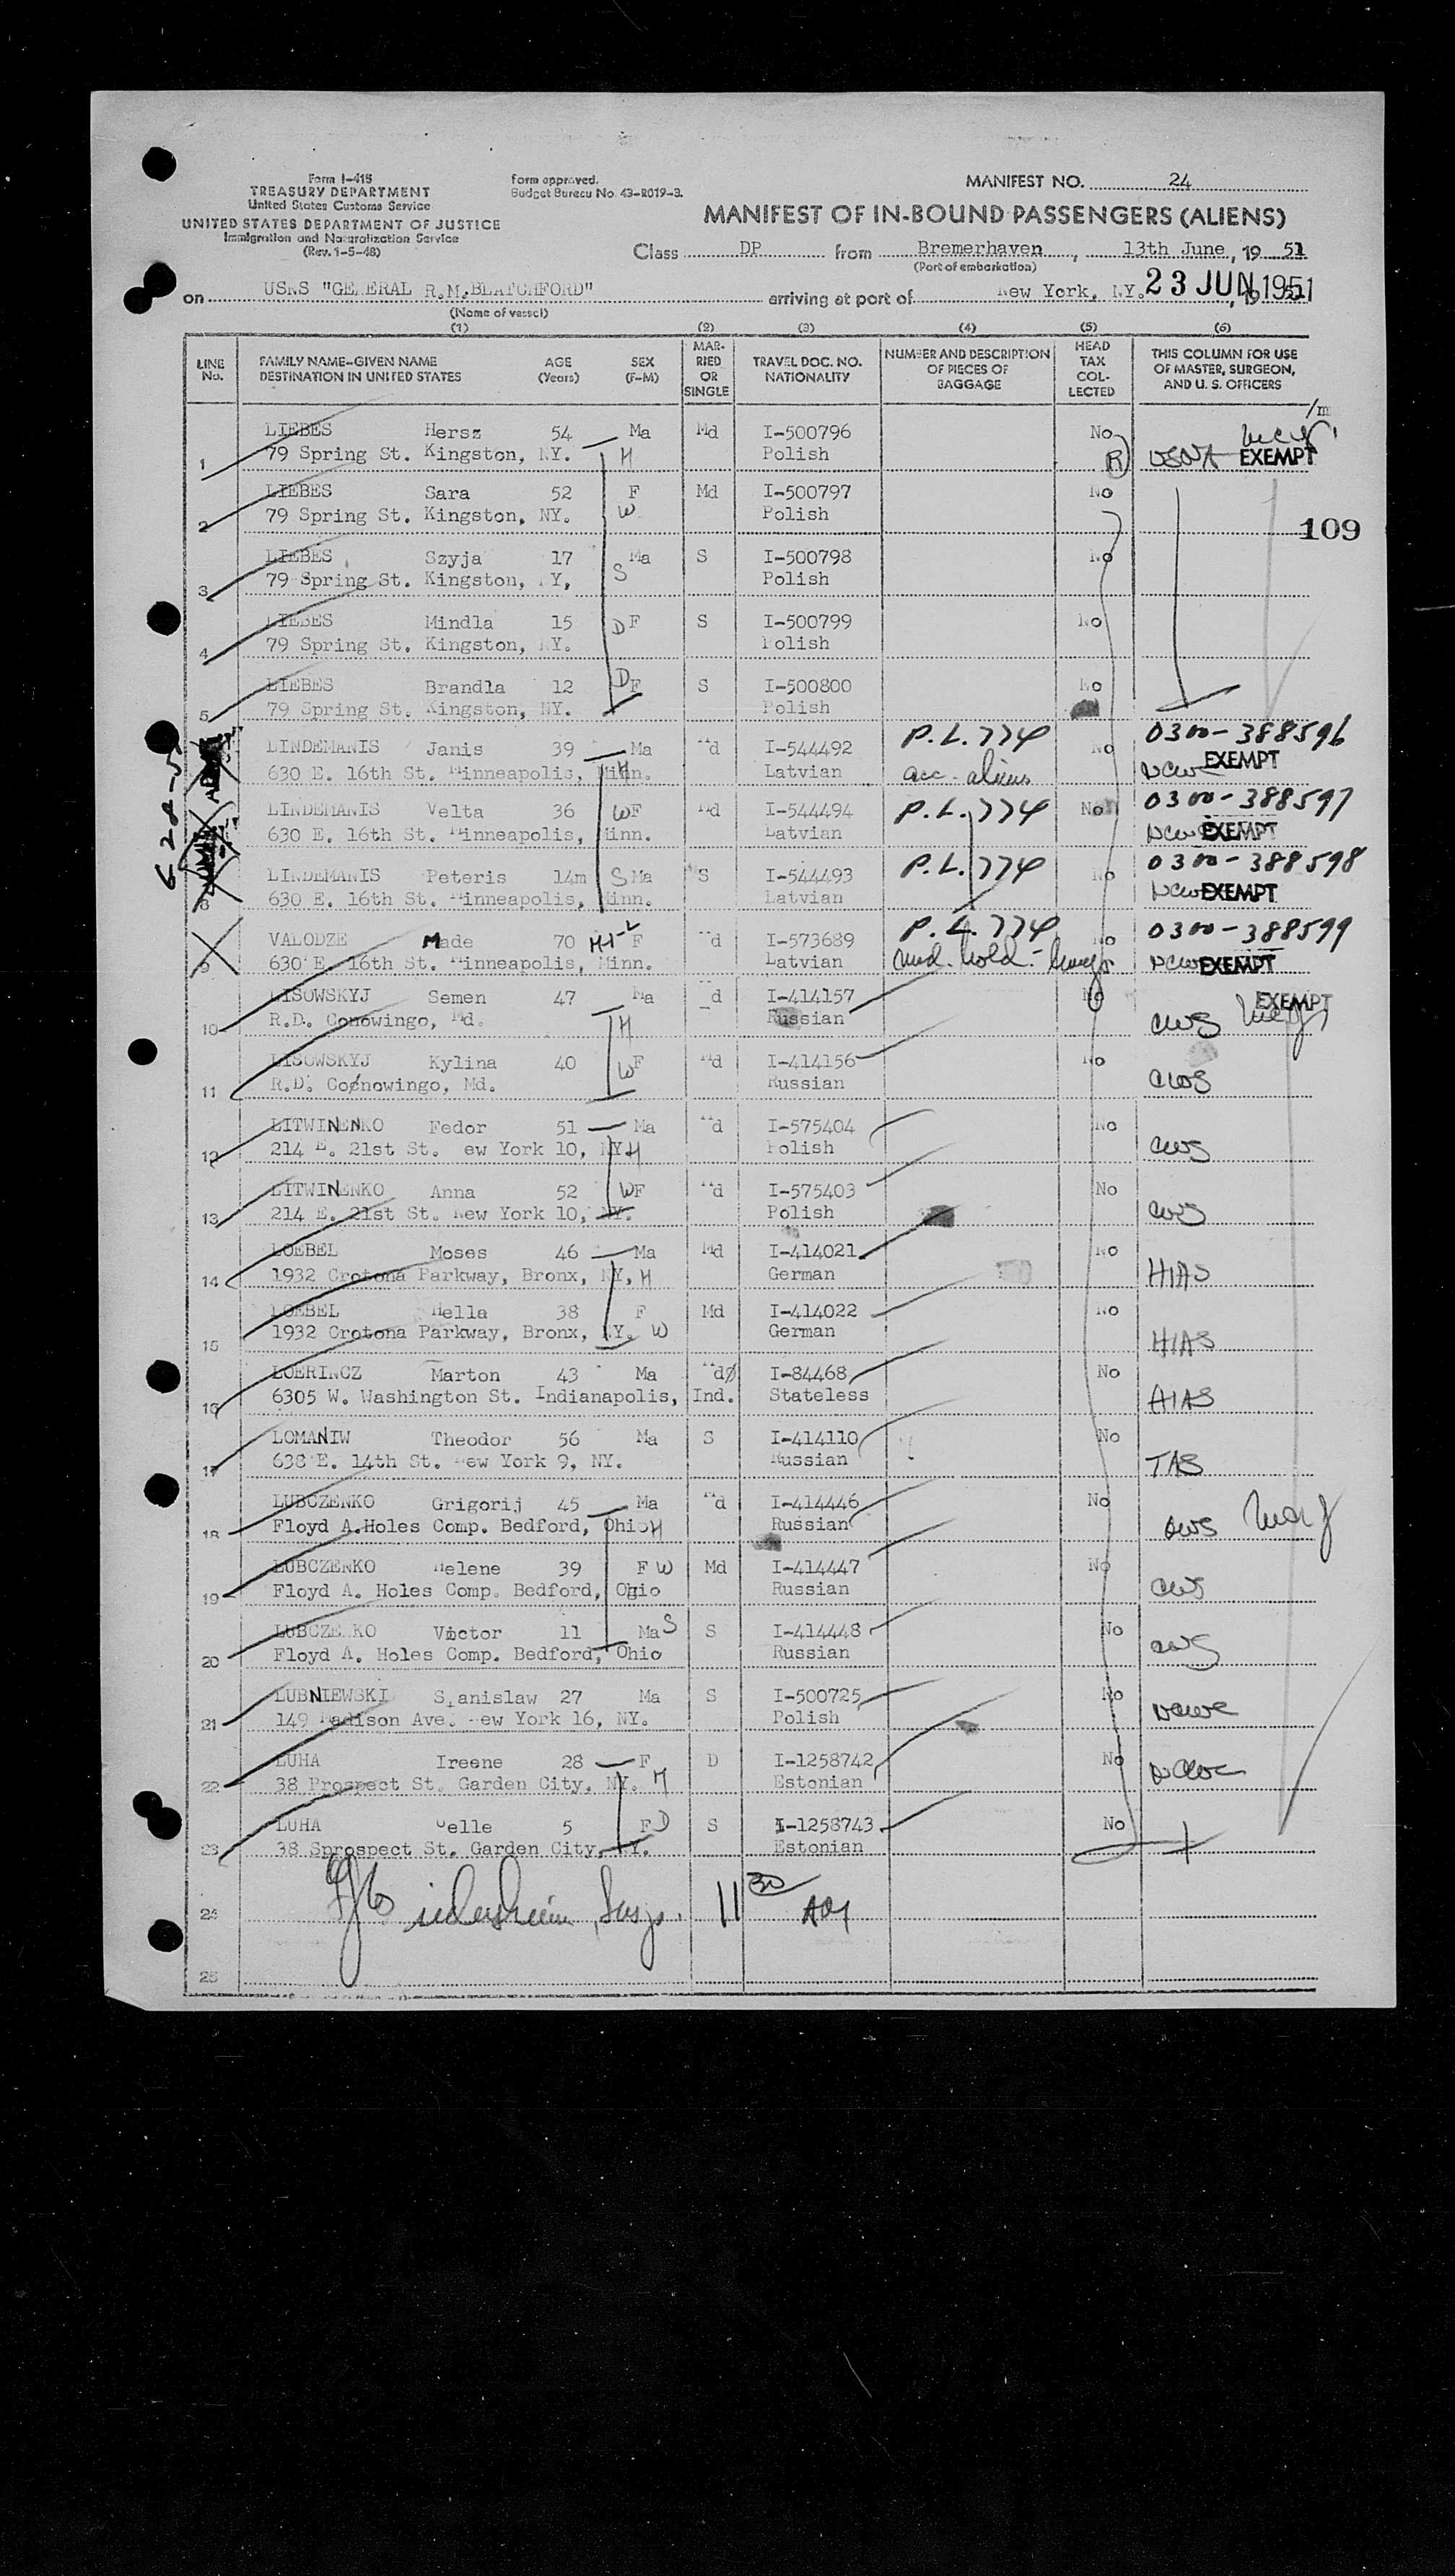 Form I-415
TREASURY DEPARTMENT
United States Customs Service
UNITED STATES DEPARTMENT OF JUSTICE
Immigration and Naturalization Service
(Rev. 1-5-48)
form approved.
Budget Bureau No. 43-R019-3.
MANIFEST NO. 24
MANIFEST OF IN-BOUND PASSENGERS (ALIENS)
Class DP from Bremerhaven, 13th June, 19 51
(Port of embarkation)
on USNS "GENERAL R.M.BLATCHFORD" arriving at port of New York, NY. 23 JUN 1951
(Name of vessel)
(1) (2) (3) (4) (5) (6)
LINE No. FAMILY NAME-GIVEN NAME DESTINATION IN UNITED STATES AGE (Years) SEX (F-M) MARRIED OR SINGLE TRAVEL DOC. NO. NATIONALITY NUMBER AND DESCRIPTION OF PIECES OF BAGGAGE HEAD TAX COLLECTED THIS COLUMN FOR USE OF MASTER, SURGEON, AND U. S. OFFICERS
LIEBES Hersz 54 Ma Md I-500796 No
1 79 Spring St. Kingston, NY. H Polish R USNA EXEMPT
LIEBES Sara 52 F Md I-500797 No
2 79 Spring St. Kingston, NY. W Polish
109
LIEBES Szyja 17 Ma S I-500798 No
3 79 Spring St. Kingston, Y, S Polish
LIEBES Mindla 15 D F S I-500799 No
4 79 Spring St. Kingston, NY. Polish
LIEBES Brandla 12 D F S I-500800 No
5 79 Spring St. Kingston, NY. Polish
LINDEMANIS Janis 39 Ma Md I-544492 P.L.774 No 0300-388596
630 E. 16th St. Minneapolis, Minn. H Latvian acc. aliens NCWC EXEMPT
LINDEMANIS Velta 36 W F Md I-544494 P.L.774 No 0300-388597
630 E. 16th St. Minneapolis, Minn. Latvian EXEMPT
LINDEMANIS Peteris 14m S Ma S I-544493 P.L.774 No 0300-388598
8 630 E. 16th St. Minneapolis, Minn. Latvian EXEMPT
VALODZE Made 70 F Md I-573689 P.L.774 No 0300-388599
9 630 E. 16th St. Minneapolis, Minn. Latvian med. hold. EXEMPT
LISOWSKYJ Semen 47 Ma d I-414157 No EXEMPT
10 R.D. Conowingo, Md. H Russian CWS
LISOWSKYJ Kylina 40 W F Md I-414156 No
11 R.D. Conowingo, Md. Russian CWS
LITWINENKO Fedor 51 Ma Md I-575404 No
12 214 E. 21st St. ew York 10, NY H Polish CWS
LITWINENKO Anna 52 W F Md I-575403 No
13 214 E. 21st St. New York 10, NY. Polish CWS
LOEBEL Moses 46 Ma Md I-414021 No
14 1932 Crotona Parkway, Bronx, NY, H German HIAS
LOEBEL Hella 38 F Md I-414022 No
15 1932 Crotona Parkway, Bronx, NY. W German HIAS
LOERINCZ Marton 43 Ma Md I-84468 No
16 6305 W. Washington St. Indianapolis, Ind. Stateless HIAS
LOMANIW Theodor 56 Ma S I-414110 No
17 638 E. 14th St. New York 9, NY. Russian TAS
LUBCZENKO Grigorij 45 Ma Md I-414446 No
18 Floyd A.Holes Comp. Bedford, Ohio H Russian CWS
LUBCZENKO Helene 39 F W Md I-414447 No
19 Floyd A. Holes Comp. Bedford, Ohio Russian CWS
LUBCZENKO Victor 11 Ma S S I-414448 No
20 Floyd A. Holes Comp. Bedford, Ohio Russian CWS
LUBNIEWSKI Stanislaw 27 Ma S I-500725 No
21 149 Madison Ave. New York 16, NY. Polish NCWC
LUHA Ireene 28 F D I-1258742 No
22 38 Prospect St. Garden City, NY. M Estonian NCWC
LUHA elle 5 F D S I-1258743 No
23 38 Sprospect St. Garden City, NY. Estonian
24 11 30
25